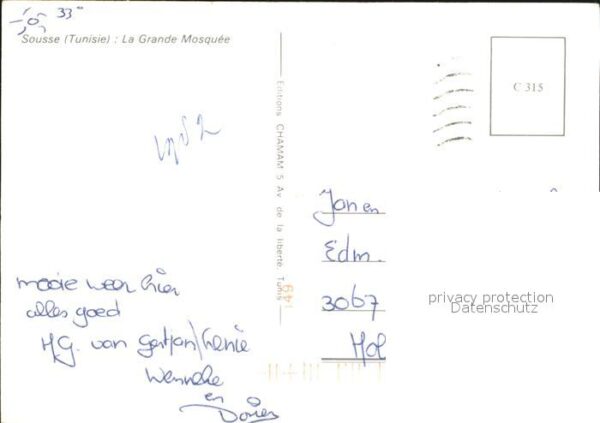 33°
Sousse (Tunisie) : La Grande Mosquée
C 315
Editions CHAMAM 5 Av. de la liberté. Tunis
Jan en
Edm.
3067
Hol
privacy protection
Datenschutz
149
mooie weer hier
alles goed
H.G. van Gertjan
Wenneke
en